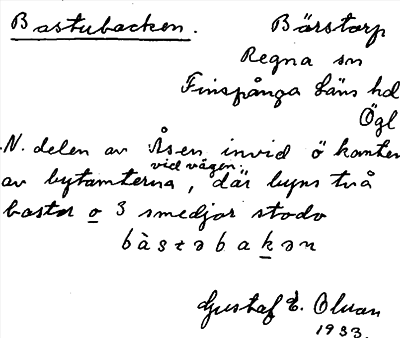 Bastubacken. Bärstorp
Regna sn
Finspånga läns hd
Ögl
N. delen av Åsen invid ö kanten
vid vägen.
av bytomterna, där byns två
bastor o 3 smedjor stodo
bàstəbakən
Gustaf E. Olsson
1933.